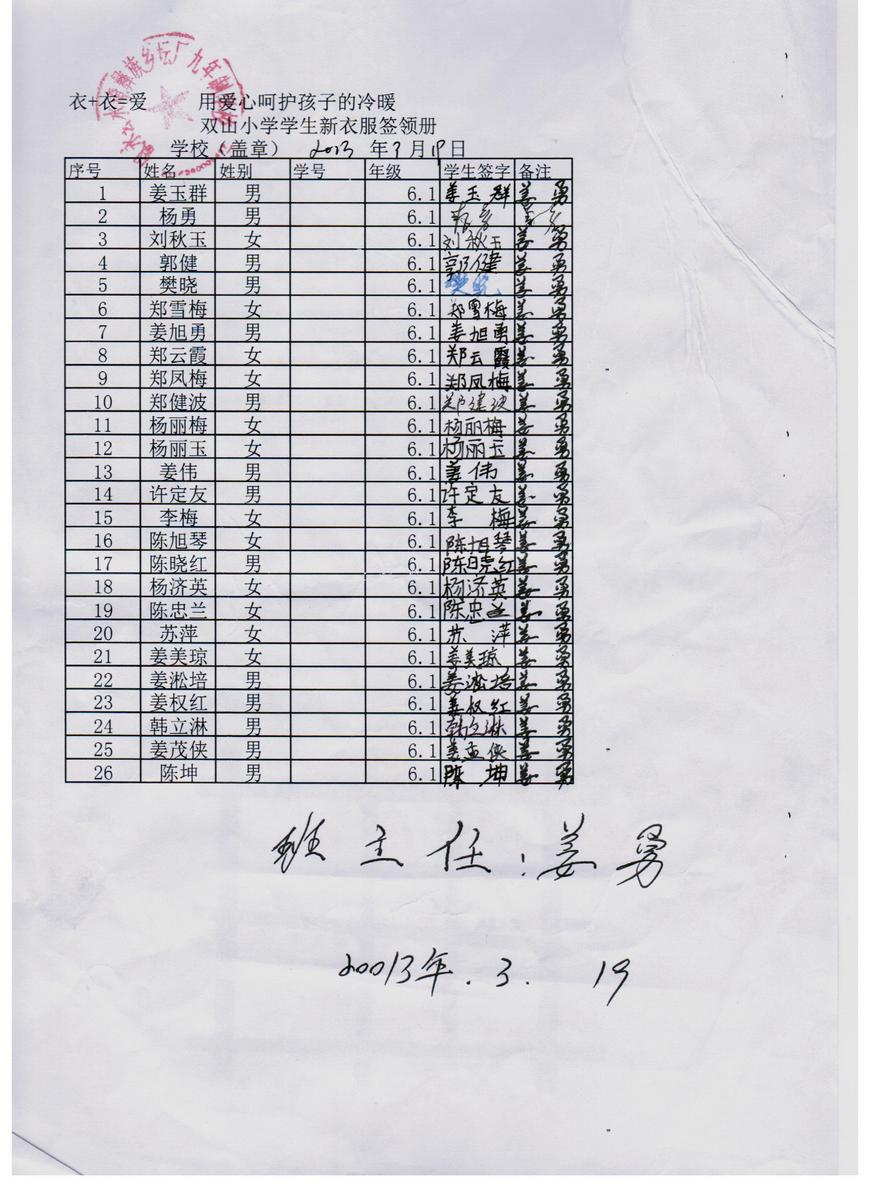 衣+衣=爱 用爱心呵护孩子的冷暖
双山小学学生新衣服签领册
学校（盖章） 2013 年3月19日
序号 姓名 姓别 学号 年级 学生签字 备注
1 姜玉群 男 6.1 姜玉群 姜勇
2 杨勇 男 6.1 杨勇 姜勇
3 刘秋玉 女 6.1 刘秋玉 姜勇
4 郭健 男 6.1 郭健 姜勇
5 樊晓 男 6.1 樊晓 姜勇
6 郑雪梅 女 6.1 郑雪梅 姜勇
7 姜旭勇 男 6.1 姜旭勇 姜勇
8 郑云霞 女 6.1 郑云霞 姜勇
9 郑凤梅 女 6.1 郑凤梅 姜勇
10 郑健波 男 6.1 郑建波 姜勇
11 杨丽梅 女 6.1 杨丽梅 姜勇
12 杨丽玉 女 6.1 杨丽玉 姜勇
13 姜伟 男 6.1 姜伟 姜勇
14 许定友 男 6.1 许定友 姜勇
15 李梅 女 6.1 李梅 姜勇
16 陈旭琴 女 6.1 陈旭琴 姜勇
17 陈晓红 男 6.1 陈晓红 姜勇
18 杨济英 女 6.1 杨济英 姜勇
19 陈忠兰 女 6.1 陈忠兰 姜勇
20 苏萍 女 6.1 苏萍 姜勇
21 姜美琼 女 6.1 姜美琼 姜勇
22 姜淞培 男 6.1 姜淞培 姜勇
23 姜权红 男 6.1 姜权红 姜勇
24 韩立淋 男 6.1 韩立淋 姜勇
25 姜茂侠 男 6.1 姜孟侠 姜勇
26 陈坤 男 6.1 陈坤 姜勇
班主任：姜勇
20013年.3. 19